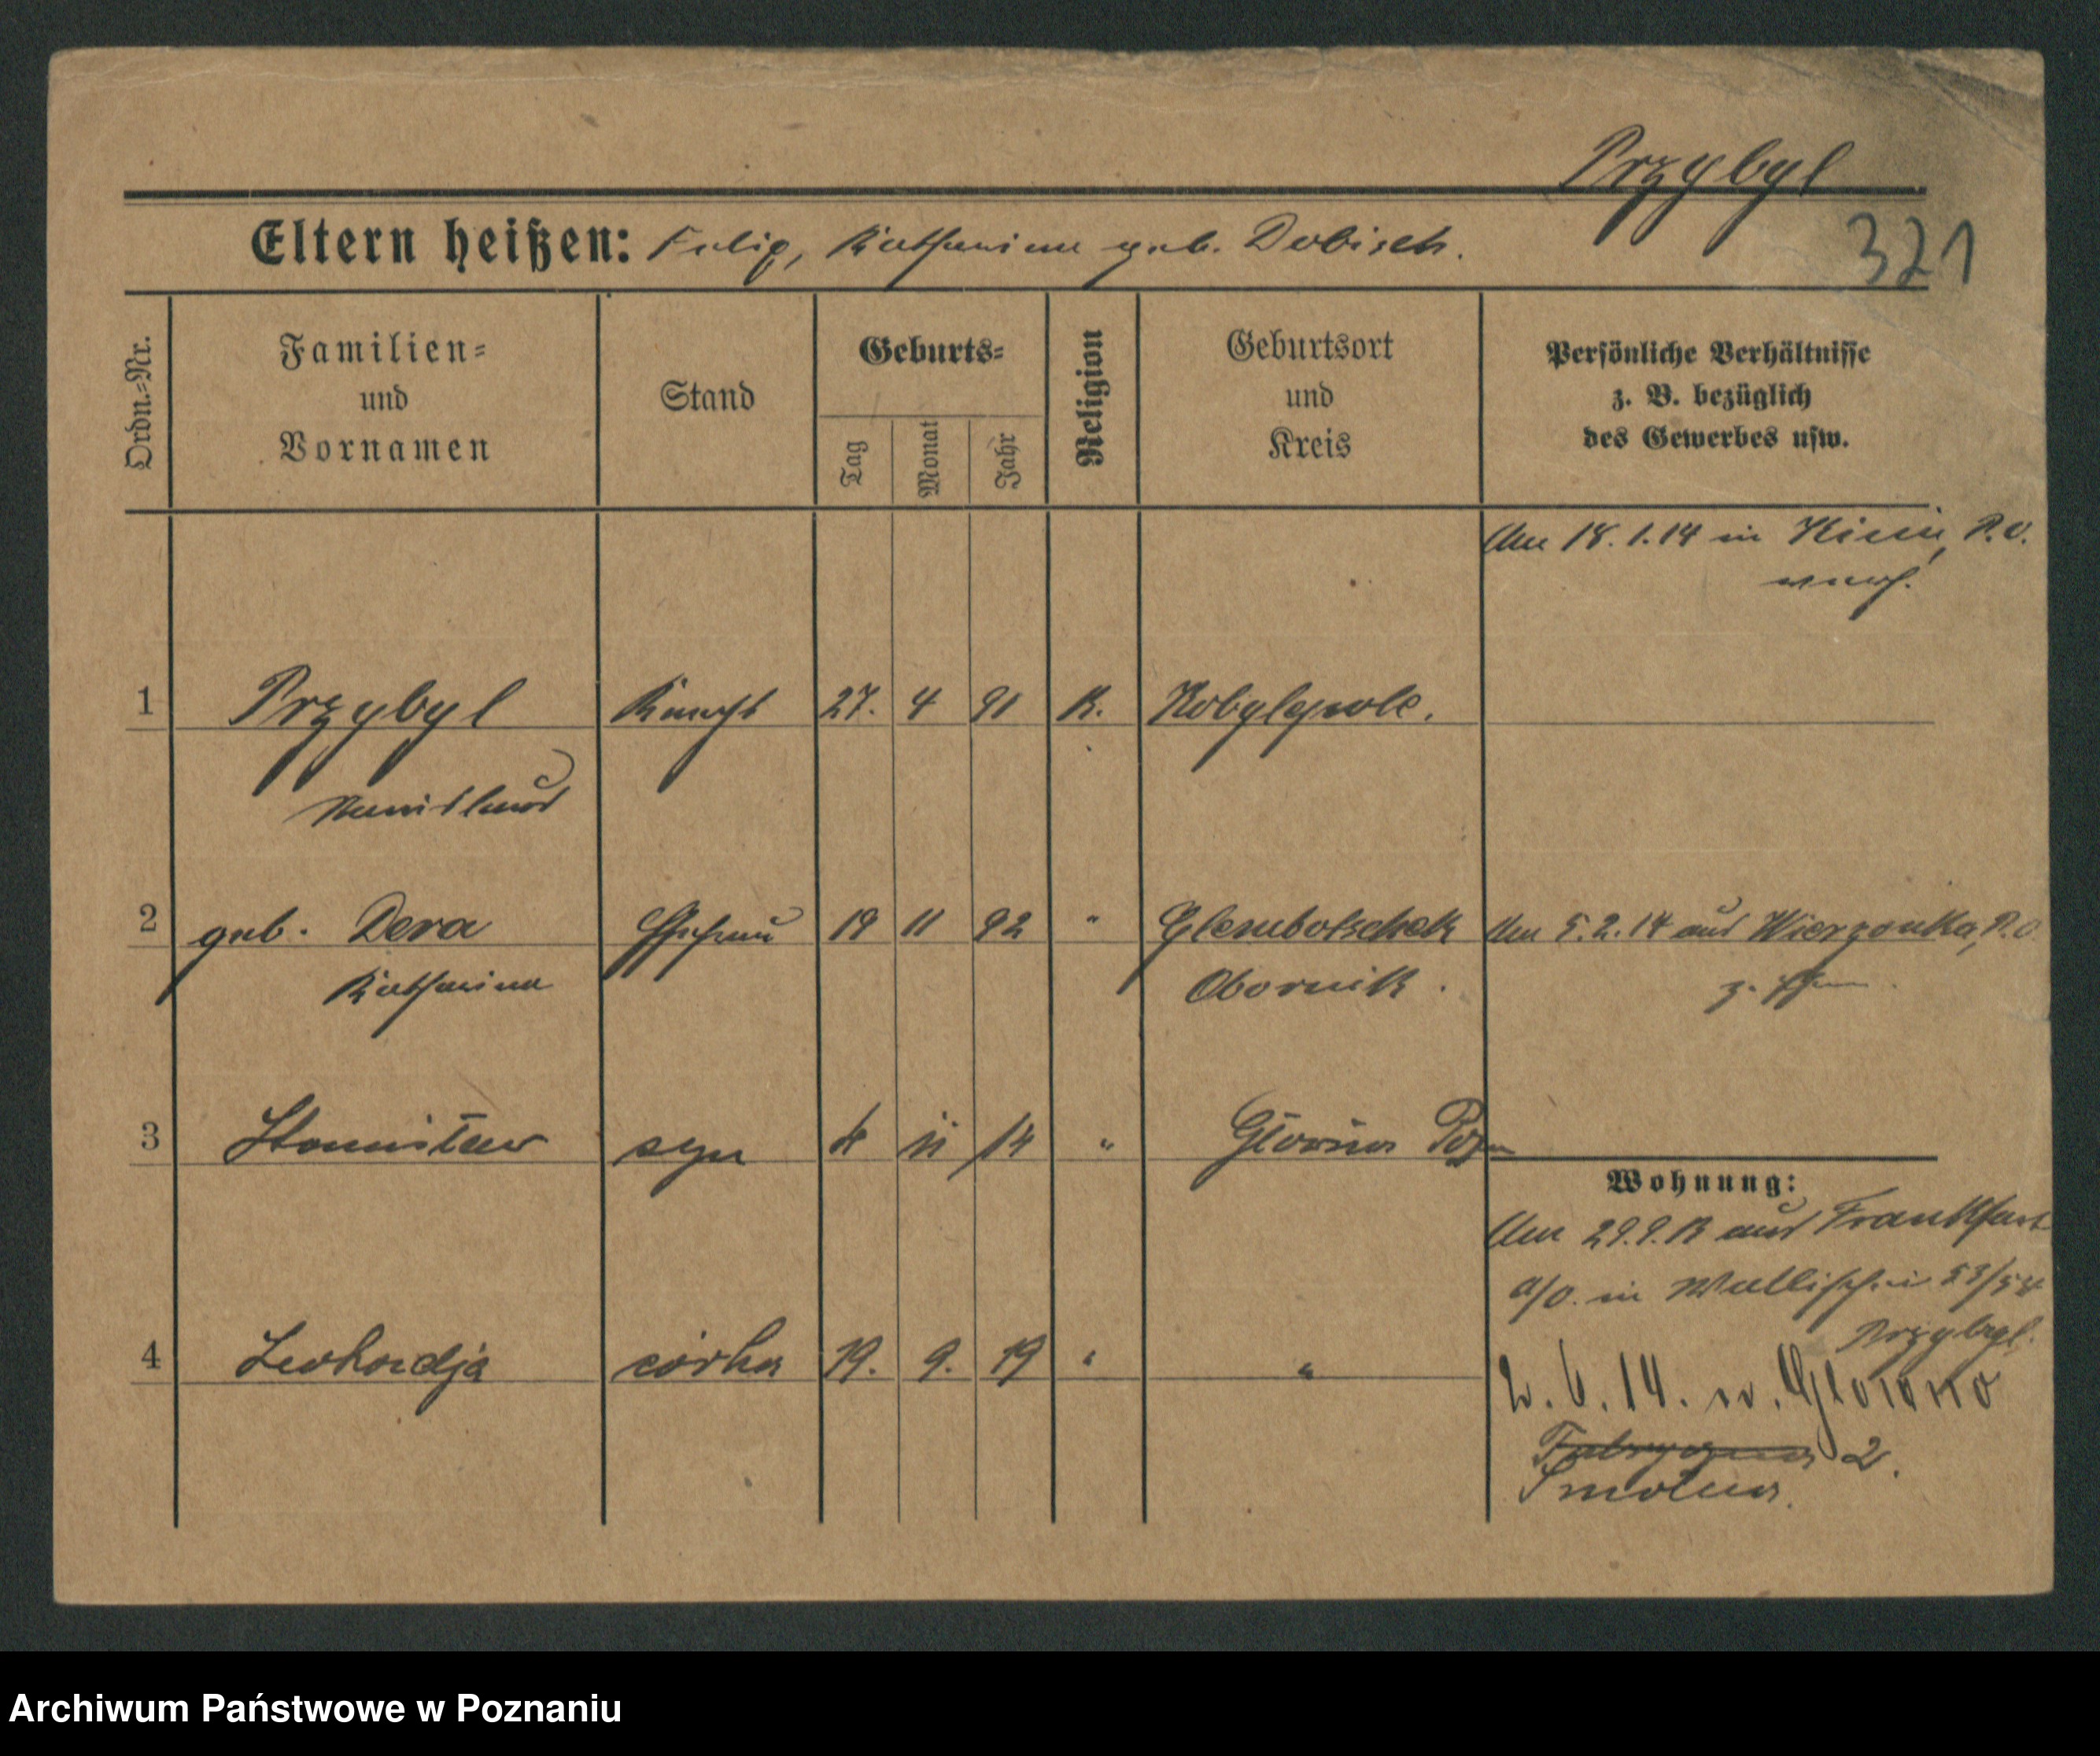 Przybyl
321
Eltern heißen: Felix, Katharina geb. Dobisch.
Ordn.-Nr.
Familien-
und
Vornamen
Stand
Geburts-
Tag
Monat
Jahr
Religion
Geburtsort
und
Kreis
Persönliche Verhältnisse
z. B. bezüglich
des Gewerbes usw.
Am 18.1.14 in P.O.
1 Przybyl Knecht 27. 4 91 K. Kobylepole.
Stanislaus
2 geb. Dera Ehefrau 19 11 92 " Glembotschek Am 5.2.14 aus Wierzonka, P.O.
Katharina Obornik. z. Ehem.
3 Stanisław syn 11 14 " Główna Pozn
Wohnung:
Am 29.9.13 aus Frankfurt
a/O. in Wallischei 53/54
Przybyl.
4 Leokardja córka 19. 9. 19 " "
2. 6. 14. w. Glowno
Fabryczna 2.
Smolna.
Archiwum Państwowe w Poznaniu